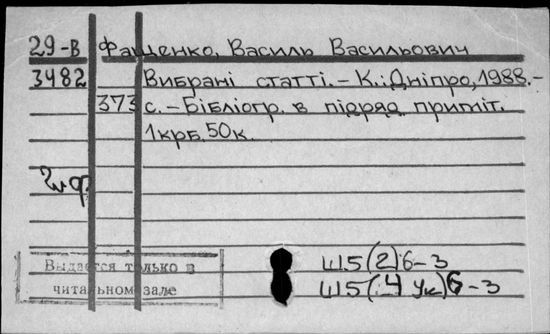 29-В Фащенко, Василь Васильович
3482 Вибрані статті.- К.: Дніпро, 1988.-
373 с.- Бібліогр. в підряд. приміт.
1крб. 50к.
Выдается только в
читальном зале
Ш5(2)6-3
Ш5(4Ук)6-3